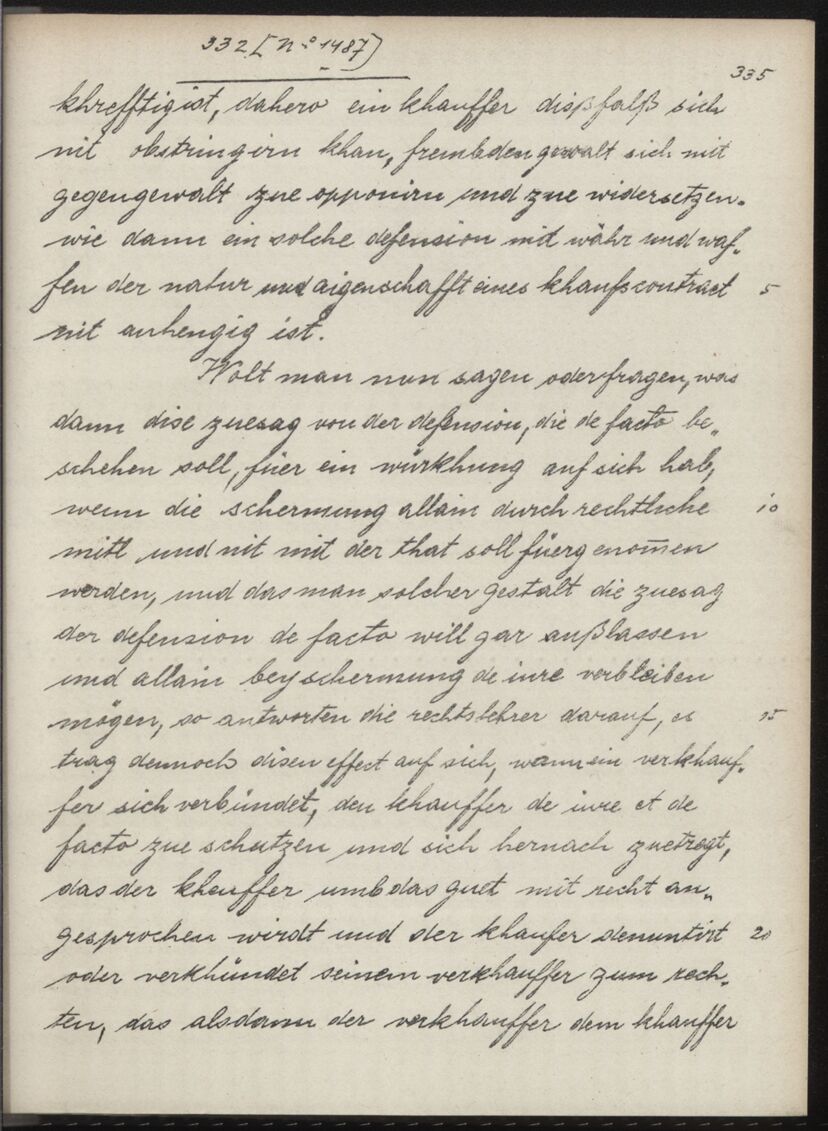 332 [No 1487]
335
khrefftig ist, dahero ein khauffer dißfalß sich
nit obstringirn khan, frembden gewalt sich mit
gegengewalt zue opponirn und zue widersetzen.
wie dann ein solche defension mit währ und waf„
fen der natur und aigenschafft eines khaufscontract 5
nit anhengig ist.
Wolt man nun sagen oder fragen, was
dann dise zuesag von der defension, die de facto be„
schehen soll, füer ein würkhung auf sich hab,
wenn die schermung allain durch rechtliche 10
mitl und nit mit der that soll füergenom̅en
werden, und das man solcher gestalt die zuesag
der defension de facto will gar außlassen
und allain bey schermung de iure verbleiben
mögen, so antworten die rechtslehrer darauf, es 15
trag dennoch disen effect auf sich, wann ein verkhauf„
fer sich verbündet, den khauffer de iure et de
facto zue schutzen und sich hernach zuetregt,
das der khauffer umb das guet mit recht an„
gesprochen wirdt und der khaufer denuntirt 20
oder verkhündet seinem verkhauffer zum rech„
ten, das alsdann der verkhauffer dem khauffer